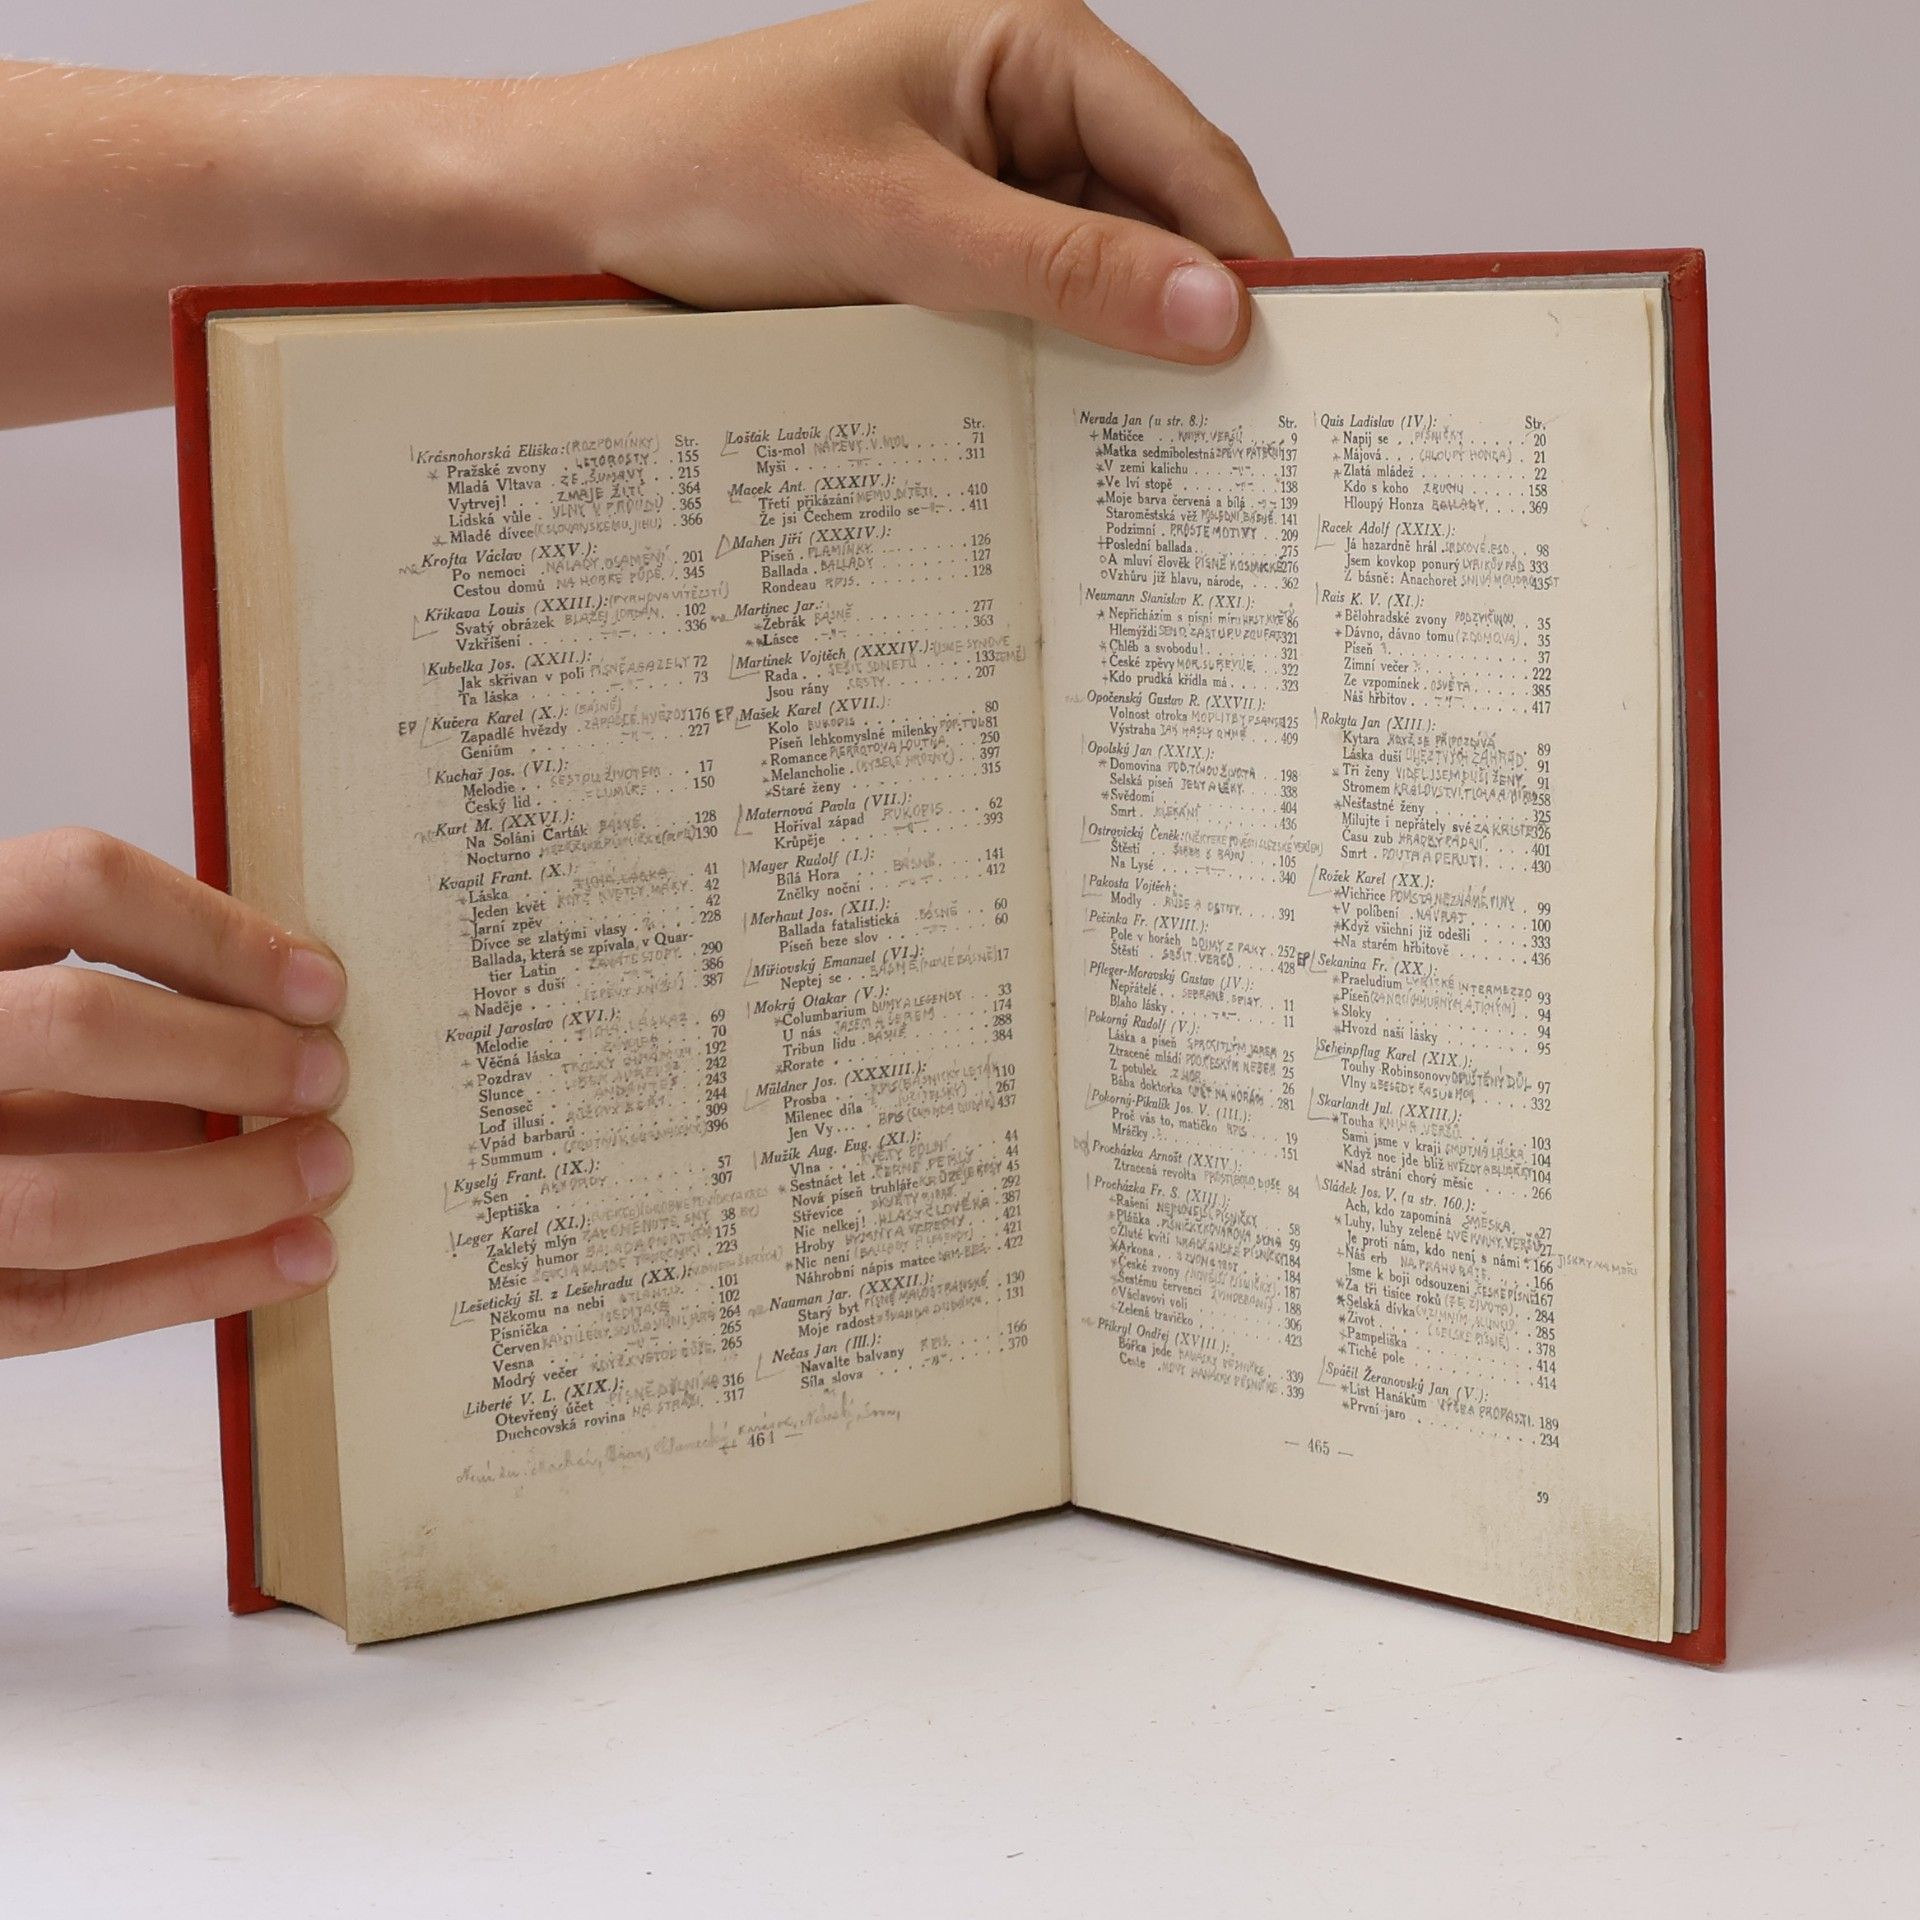 Krásnohorská Eliška: (ROZPOMÍNKY) Str.
* Pražské zvony . LETOROSTY . . 155
Mladá Vltava . ZE ŠUMAVY . 215
Vytrvej! . . ZMAJE ŽITÍ . 364
Lidská vůle . VLNY V PROUDU . 365
* Mladé dívce (K SLOVANSKÉMU JIHU) . 366
Krofta Václav (XXV.):
Po nemoci . NÁLADY OSAMĚNÍ . 201
Cestou domů NA HOŘKÉ PŮDĚ . 345
Křikava Louis (XXIII.): (PYRHOVA VÍTĚZSTVÍ)
Svatý obrázek BLAŽEJ JORDÁN . 102
Vzkříšení . . . . 336
Kubelka Jos. (XXII.):
Jak skřivan v poli PÍSNĚ A GAZELY 72
Ta láska . . . . 73
EP Kučera Karel (X.): (BÁSNĚ)
Zapadlé hvězdy . ZAPADLÉ HVĚZDY 176
Geniům . . . . 227
Kuchař Jos. (VI.):
Melodie . . CESTOU ŽIVOTEM . . 17
Český lid . . LUMÍR . . 150
Kurt M. (XXVI.):
Na Soláni Čarták BÁSNĚ . 128
Nocturno . 130
Kvapil Frant. (X.):
* Láska . TICHÁ LÁSKA . 41
+ Jeden květ KDYŽ KVETLY MÁKY . 42
* Jarní zpěv . . . . 42
Dívce se zlatými vlasy . . . 228
Ballada, která se zpívala v Quar-
tier Latin . ZAVÁTÉ STOPY . 290
Hovor s duší . . . 386
* Naděje . . (ZPĚVY KNÍŽECÍ) . 387
Kvapil Jaroslav (XVI.):
Melodie . . TICHÁ LÁSKA . 69
+ Věčná láska . . 70
* Pozdrav . . 192
Slunce . . 242
Senoseč . . ANDANTE . 243
Loď illusí . . 244
* Vpád barbarů . . . 309
+ Summum . . 396
Kyselý Frant. (IX.):
* Sen . . AKKORDY . . 57
* Jeptiška . . . . 307
Leger Karel (XI.):
Zakletý mlýn ZAPOMENUTÉ SNY . 38
Český humor . 175
Měsíc . 223
Lešetický šl. z Lešehradu (XX.):
Někomu na nebi . ATLANTIS . 101
Písnička . . MEDITACE . . 102
Červen . 264
Vesna . . . . 265
Modrý večer . KDYŽ KVETOU RŮŽE . 265
Liberté V. L. (XIX.):
Otevřený účet . PÍSNĚ DĚLNÍKA 316
Duchcovská rovina NA STRÁŽI . 317
— 464 —
Lošťák Ludvík (XV.): Str.
Cis-mol NÁPĚVY V MOL . . . . 71
Myši . . . . 311
Macek Ant. (XXXIV.):
Třetí přikázání MÉMU DÍTĚTI . . 410
Že jsi Čechem zrodilo se . 411
Mahen Jiří (XXXIV.):
Píseň . PLAMÍNKY . . . . 126
Ballada . BALLADY . . . . 127
Rondeau RPIS . . . . 128
Martinec Jar.:
* Žebrák BÁSNĚ . . . . 277
** Lásce . . . . 363
Martinek Vojtěch (XXXIV.): (JSME SYNOVÉ ZEMĚ)
Rada . . SEŠIT SONETŮ . . 133
Jsou rány . CESTY . . 207
EP Mašek Karel (XVII.):
Kolo RUKOPIS . . . . 80
Píseň lehkomyslné milenky 81
* Romance PIERROTOVA LOUTNA . 250
* Melancholie . (KYSELÉ HROZNY) . 397
* Staré ženy . . . . 315
Maternová Pavla (VII.):
Hořival západ RUKOPIS . . 62
Krůpěje . . . . 393
Mayer Rudolf (I.):
Bílá Hora . . BÁSNĚ . . 141
Znělky noční . . . 412
Merhaut Jos. (XII.):
Ballada fatalistická . BÁSNĚ . 60
Píseň beze slov . . . 60
Miřiovský Emanuel (VI.):
Neptej se . . BÁSNĚ (NOVÉ BÁSNĚ) 17
Mokrý Otakar (V.):
* Columbarium DUMY A LEGENDY . . 33
U nás . JASEM A ŠEREM . . 174
Tribun lidu . BÁSNĚ . . 288
* Rorate . . . . 384
Müldner Jos. (XXXIII.):
Prosba . . RPIS (BÁSNICKÝ LETÁK) 110
Milenec díla . . 267
Jen Vy . . . . RPIS (ŠVANDA DUDÁK) 437
Mužík Aug. Eug. (XI.):
Vlna . . . KVĚTY POLNÍ . 44
* Šestnáct let . ČERNÉ PERLY . 44
Nová píseň truhláře KRŮPĚJE ROSY 45
Střevíce . . 292
Nic nelkej! . HLASY ČLOVĚKA . 387
Hroby HYMNY A VZDECHY . 421
* Nic není (BALLADY A LEGENDY) . 421
Náhrobní nápis matce . 422
Nauman Jar. (XXXII.):
Starý byt PÍSNĚ MALOSTRANSKÉ . 130
Moje radost ŠVANDA DUDÁK . . 131
Nečas Jan (III.):
Navalte balvany RPIS . . 166
Síla slova . . . . 370
Neruda Jan (u str. 8.): Str.
+ Matičce . . KNIHY VERŠŮ . . 9
* Matka sedmibolestná ZPĚVY PÁTEČNÍ 137
* V zemi kalichu . . . . 137
* Ve lví stopě . . . . 138
* Moje barva červená a bílá . 139
Staroměstská věž POSLEDNÍ BÁSNĚ . 141
Podzimní . PROSTÉ MOTIVY . . 209
+ Poslední ballada . . . 275
o A mluví člověk PÍSNĚ KOSMICKÉ 276
o Vzhůru již hlavu, národe, . . 362
Neumann Stanislav K. (XXI.):
* Nepřicházím s písní míru HRST KVĚTŮ 86
Hlemýždi SEN O ZÁSTUPU ZOUFAJ. 321
* Chléb a svobodu! . . . . 321
+ České zpěvy MOR. SL. REVUE . 322
+ Kdo prudká křídla má . . . 323
Opočenský Gustav R. (XXVII.):
Volnost otroka MODLITBY PSANCE 125
Výstraha JAK HASLY OHNĚ . 409
Opolský Jan (XXIX.):
* Domovina POD TÍHOU ŽIVOTA . . 198
Selská píseň JEDY A LÉKY . . 338
* Svědomí . . . . 404
Smrt . KLEKÁNÍ . . . 436
Ostravický Čeněk: (NĚKTERÉ POVĚSTI SLEZSKÉ VERŠEM)
Štěstí . . . . 105
Na Lysé . . . . 340
Pakosta Vojtěch:
Modly . RŮŽE A OSTNY . . 391
Pečinka Fr. (XVIII.):
Pole v horách DOJMY Z PAKY . 252
Štěstí . SEŠIT VERŠŮ . 428
Pfleger-Moravský Gustav (IV.):
Nepřátelé . SEBRANÉ SPISY . 11
Blaho lásky . . . . 11
Pokorný Rudolf (V.):
Láska a píseň S PROCITLÝM JAREM 25
Ztracené mládí POD ČESKÝM NEBEM 25
Z potulek . Z HOR . . 26
Bába doktorka OPĚT NA HORÁCH . 281
Pokorný-Pikulík Jos. V. (III.):
Proč vás to, matičko RPIS . . 19
Mráčky . . . . 151
Procházka Arnošt (XXIV.):
Ztracená revolta PROSTIBOLO DUŠE 84
Procházka Fr. S. (XIII.):
+ Rašení NEJNOVĚJŠÍ PÍSNIČKY . 58
* Pláňka . PÍSNIČKY KOVÁŘOVA SYNA 59
o Žluté kvítí HRADČANSKÉ PÍSNIČKY 184
* Arkona . . . 184
* České zvony (NOVĚJŠÍ PÍSNIČKY) . 187
* Šestému červenci . 188
o Václavovi voli . . . 306
+ Zelená travičko . . . 423
Přikryl Ondřej (XVIII.):
Bóřka jede HANÁCKÝ PĚSNIČKE . . 339
Ceste . NOVÝ HANÁCKÝ PĚSNIČKE . 339
— 465 —
Quis Ladislav (IV.): Str.
* Napij se . . PÍSNIČKY . . . . 20
* Májová . . . (HLOUPÝ HONZA) . 21
* Zlatá mládež . . . . 22
Kdo s koho . Z RUCHU . . . . 158
Hloupý Honza BALLADY . . . 369
Racek Adolf (XXIX.):
Já hazardně hrál . SRDCOVÉ ESO . . 98
Jsem kovkop ponurý LYRIKŮV PÁD 333
Z básně: Anachoret SNIVÁ MOUDROST 435
Rais K. V. (XI.):
* Bělohradské zvony PODZVIČINOU . 35
* Dávno, dávno tomu (Z DOMOVA) . 35
Píseň . . . . 37
Zimní večer . . . 222
Ze vzpomínek . OSVĚTA . . 385
Náš hřbitov . . . 417
Rokyta Jan (XIII.):
Kytara KDYŽ SE PŘIPOZDÍVÁ . 89
Láska duší . 91
* Tři ženy VIDĚL JSEM DUŠI ŽENY . 91
Stromem KRÁLOVSTVÍ TICHA A MÍRU 258
* Nešťastné ženy . . . . 325
Milujte i nepřátely své ZA KRISTEM 326
Času zub HRADBY PADAJÍ . . . 401
Smrt . POUTA A PERUTI . . . 430
Rožek Karel (XX.):
* Vichřice POMSTA NEZNÁMÉ VINY . 99
+ V políbení . NÁVRAT . . 100
* Když všichni již odešli . . . 333
+ Na starém hřbitově . . . 436
EP Sekanina Fr. (XX.):
* Praeludium LYRICKÉ INTERMEZZO 93
* Píseň (ZA NOCÍ CHMURNÝCH A TICHÝCH) . 94
* Sloky . . . . 94
* Hvozd naší lásky . . . . 95
Scheinpflug Karel (XIX.):
Touhy Robinsonovy OPUŠTĚNÝ DŮL 97
Vlny . BESEDY ČASU . . 332
Skarlandt Jul. (XXIII.):
* Touha KNIHA VERŠŮ . . . . 103
Sami jsme v kraji SMUTNÁ LÁSKA . 104
Když noc jde blíž HVĚZDY A BLUDIČKY 104
* Nad strání chorý měsíc . . . 266
Sládek Jos. V. (u str. 160.):
Ach, kdo zapomíná . SMĚSKA . 27
* Luhy, luhy zelené . 27
Je proti nám, kdo není s námi . 166 JISKRY NA MOŘI
+ Náš erb . NA PRAHU RÁJE . . 166
Jsme k boji odsouzeni ČESKÉ PÍSNĚ 167
* Za tři tisíce roků (ZE ŽIVOTA) . 284
* Selská dívka (V ZIMNÍM SLUNCI) . 285
* Život . . . (SELSKÉ PÍSNĚ) . 378
+ Pampeliška . . . . 414
* Tiché pole . . . . 414
Spáčil Žeranovský Jan (V.):
* List Hanákům . VÝŠKA PROPASTI . 189
* První jaro . . . . 234
59